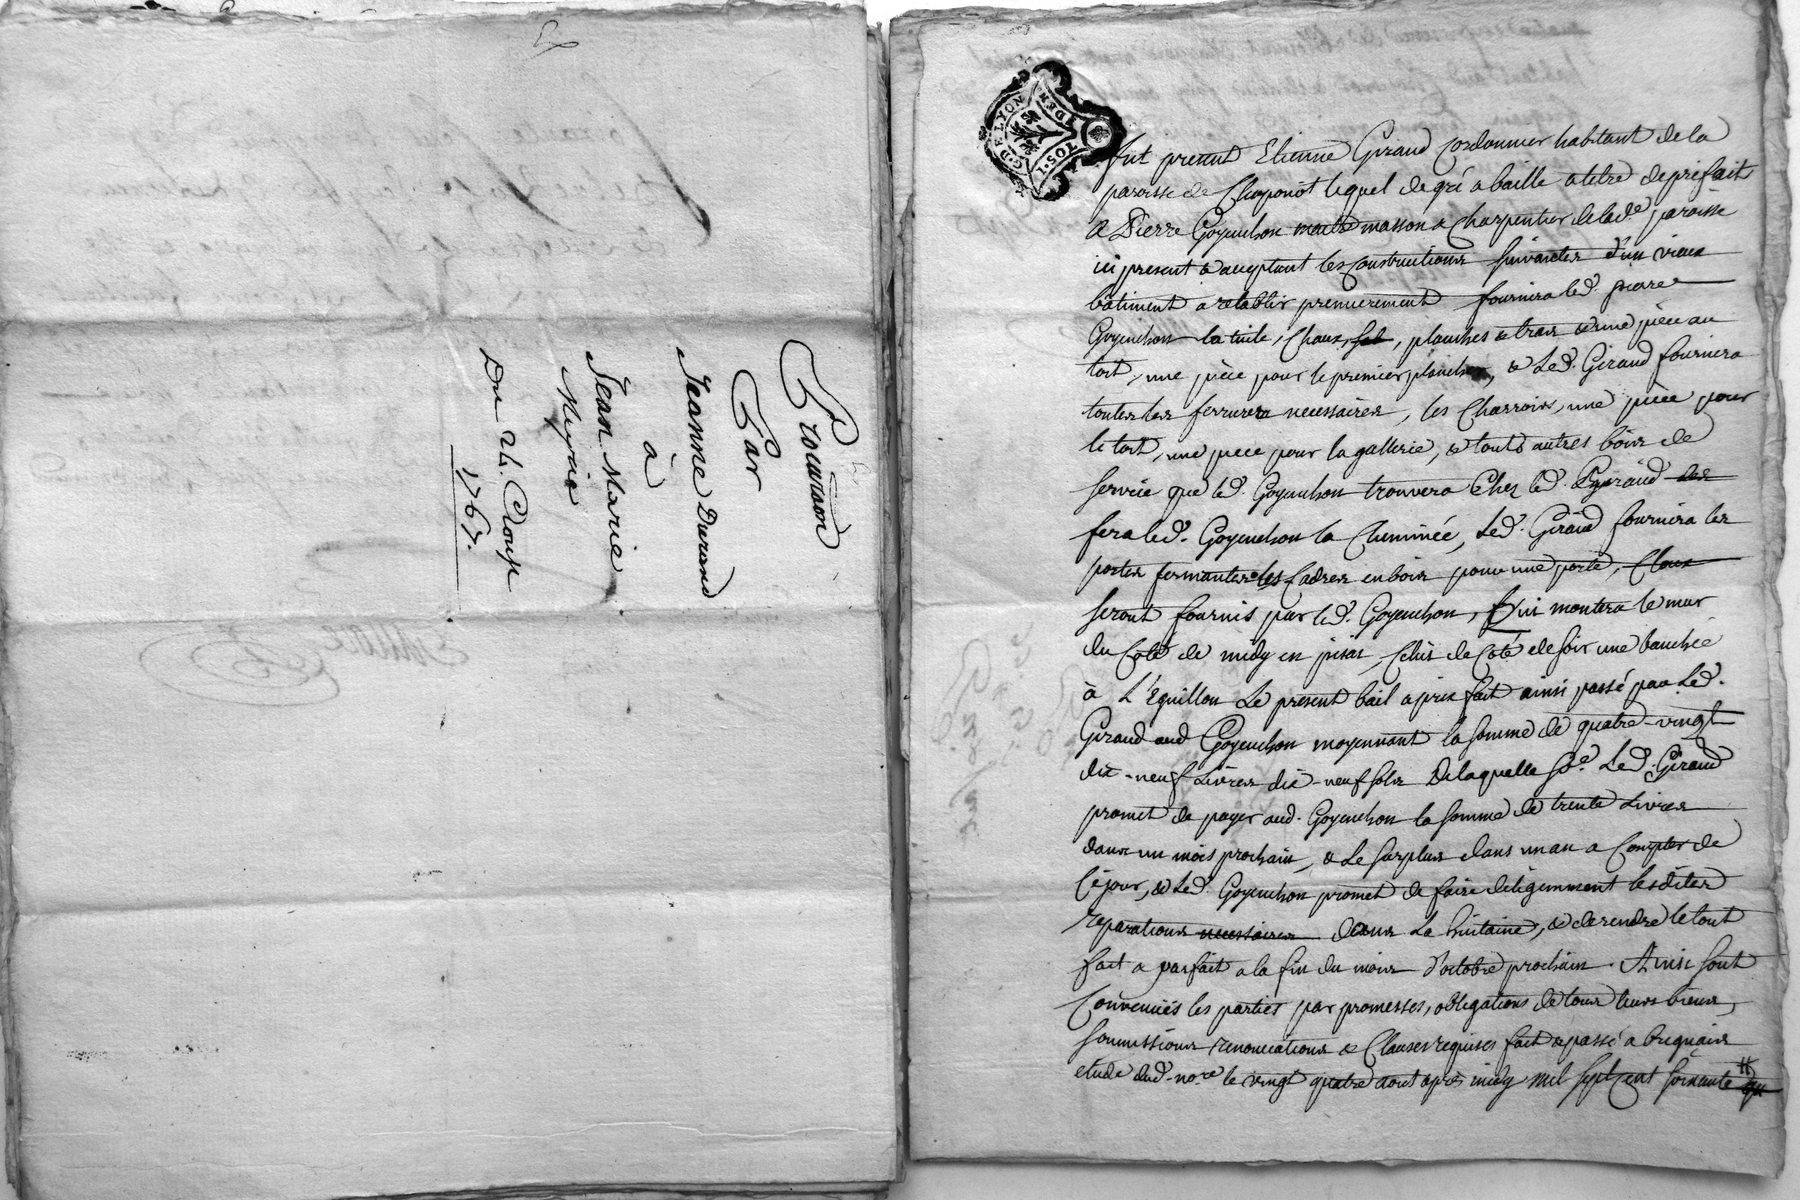 Procuraon
Par
Jeanne Durand
à
Jean Marie
Neyrie
Du 24. Aoust
1767.
G. DE LYON
DEN
TOS. I
fut present Etienne Giraud Cordonnier habitant de la
paroisse de Chaponôt lequel de gré a baillé a titre de prifait
a Pierre Goyenchon maitre masson & Charpentier de lade paroisse
ici present & acceptant les Constructions suivantes d'un vieux
bâtiment a retablir premierement fournira led. pierre
Goyenchon la tuile, Chaux, planches & trax & une pièce au
toit, une pièce pour le premier plancher, & Led. Giraud fournira
toutes les ferrures necessaires, les Charrois, une pièce pour
le toit, une piece pour la gallerie, & touts autres bois de
service que led. Goyenchon trouvera Chez led. Giraud
fera led. Goyenchon la Cheminée, Led. Giraud fournira les
portes fermantes les Cadres en bois pour une porte, Cloux
seront fournis par led. Goyenchon, Qui montera le mur
du Coté de midy en pisai, Celui de Coté de soir une banchée
à L'Eguillon Le present bail a prix fait ainsi passé par Led.
Giraud aud Goyenchon moyennant la somme de quatre-vingt
dix-neuf Livres dix-neuf sols De laquelle soe Led. Giraud
promet de payer aud. Goyenchon la somme de trente Livres
dans un mois prochain, & Le surplus dans un an a Compter de
Cejour, & Led. Goyenchon promet de faire diligemment lesdites
reparations necessaires dans La huitaine, & de rendre le tout
fait & parfait a la fin du mois d'octobre prochain. Ainsi sont
Convenués les parties par promesses, obligations de tous leurs biens,
soumissions renonciations & Clauses requises fait & passé a briguais
etude dud. nore le vingt quatre aout après midy mil sept cent soixante